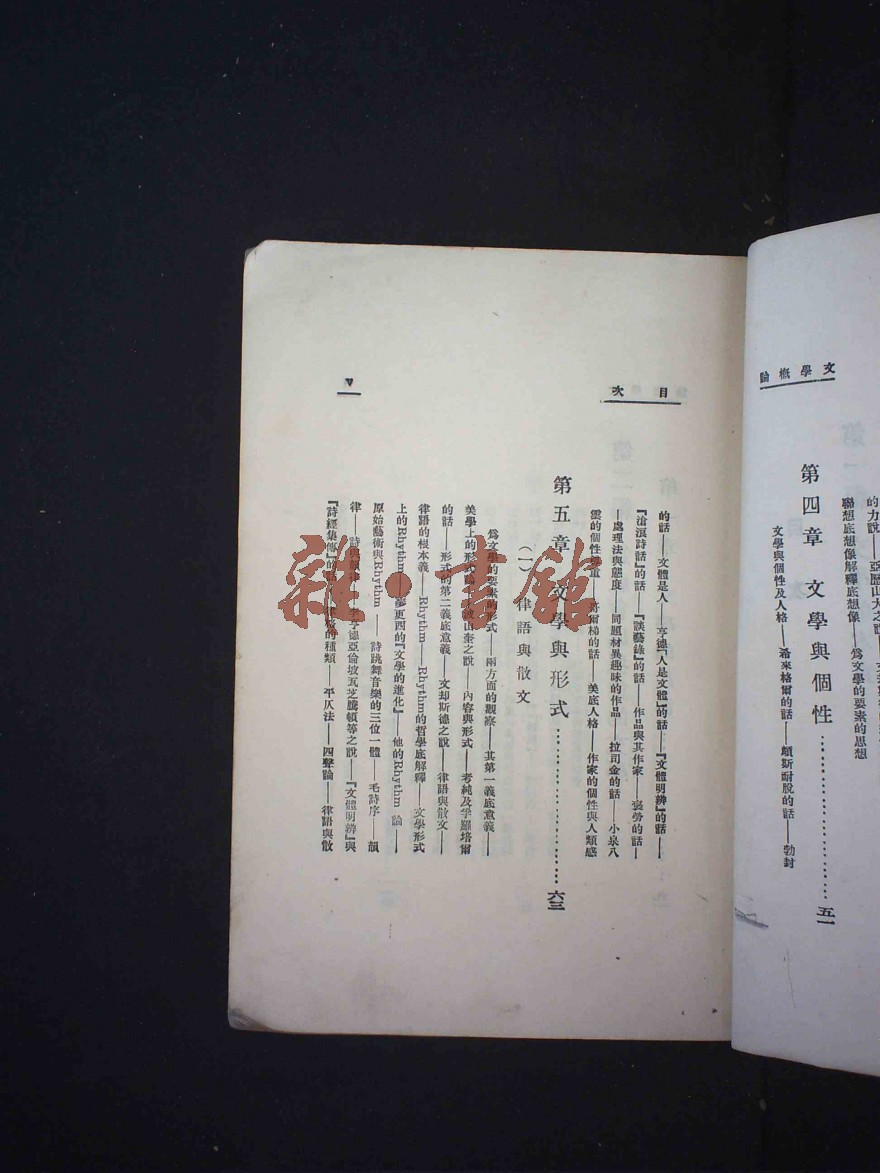 文學概論
的力說——亞歷山大之說
聯想底想像解釋底想像——爲文學的要素的思想
第四章 文學與個性……………………五一
文學與個性及人格——希來格爾的話——頗斯耐脫的話——勃封
目次
的話——文體是人——亨德「人是文體」的話——『文體明辨』的話——
『滄浪詩話』的話——『談藝錄』的話——作品與其作家——裵勞的話——
——處理法與態度——同題材異趣味的作品——拉司金的話——小泉八
雲的個性尊重——莽爾梯的話——美底人格——作家的個性與人類感
第五章 文學與形式……………………六三
(一) 律語與散文
爲文學的要素的形式——兩方面的觀察——其第一義底意義——
美學上的形式論——波山奎之說——內容與形式——考純及孚羅培爾
的話——形式的第二義底意義——文却斯德之說——律語與散文——
律語的根本義——Rhythm——Rhythm的哲學底解釋——文學形式
上的Rhythm——麥更西的『文學的進化』——他的Rhythm論——
原始藝術與Rhythm——詩跳舞音樂的三位一體——毛詩序——韻
律——詩與韻律——亨德亞倫坡瓦芝騰頓等之說——『文體明辨』與
『詩經集傳』的話——的種類——平仄法——四聲論——律語與散
V
雜·書館